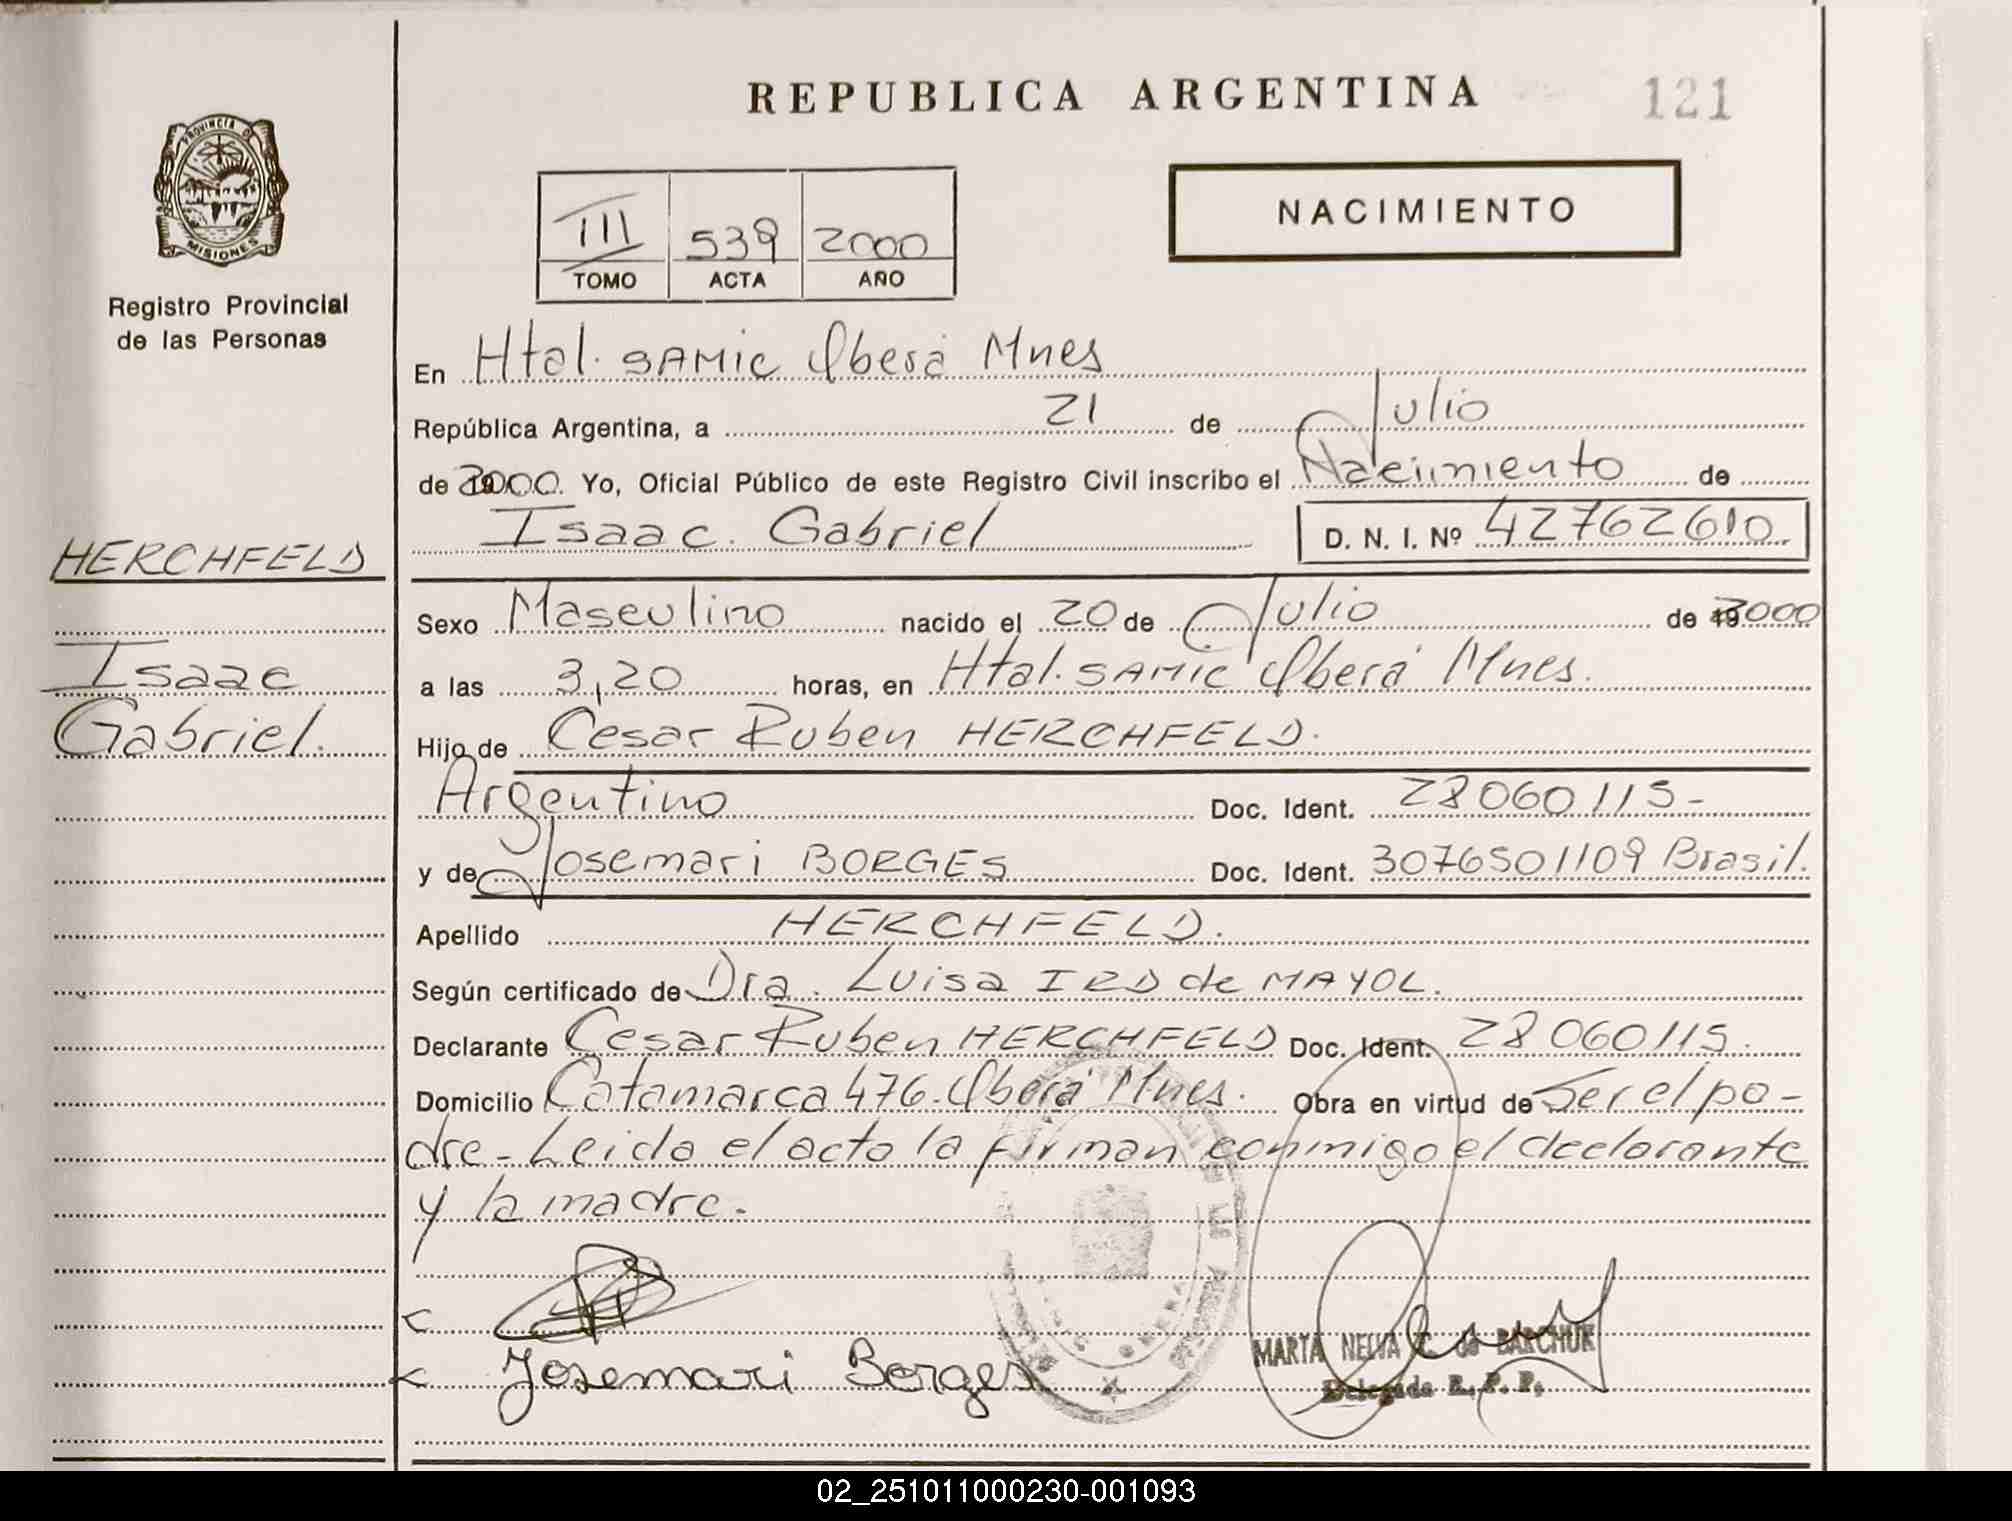 REPUBLICA ARGENTINA
121
PROVINCIA DE
MISIONES
Registro Provincial
de las Personas
III 539 2000
TOMO ACTA AÑO
NACIMIENTO
En Htal. SAMIC Oberá Mnes
República Argentina, a 21 de Julio
de 2000 Yo, Oficial Público de este Registro Civil inscribo el Nacimiento de
Isaac Gabriel D. N. I. Nº 42762610
HERCHFELD
Isaac
Gabriel.
Sexo Masculino nacido el 20 de Julio de 2000
a las 3,20 horas, en Htal. SAMIC Oberá Mnes.
Hijo de Cesar Ruben HERCHFELD.
Argentino Doc. Ident. 28060115-
y de Josemari BORGES Doc. Ident. 3076501109 Brasil.
Apellido HERCHFELD.
Según certificado de Dra. Luisa IRD de MAYOL.
Declarante Cesar Ruben HERCHFELD Doc. Ident. 28060115.
Domicilio Catamarca 476. Oberá Mnes. Obra en virtud de Ser el pa-
dre - Leida el acta la firman conmigo el declarante
y la madre.
Josemari Borges
MARTA NELVA C. de BARCHUK
Delegada R. P. P.
02_251011000230-001093